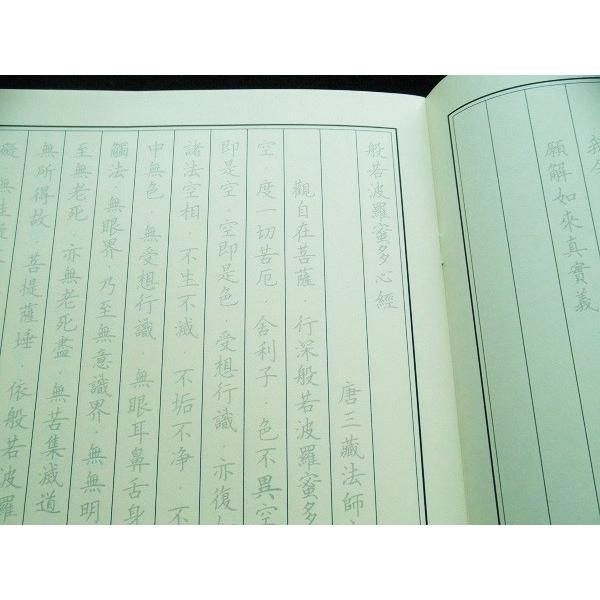 願解如來真實義
般若波羅蜜多心經
唐三藏法師
觀自在菩薩．行深般若波羅蜜多
空．度一切苦厄．舍利子．色不異空
即是空．空即是色．受想行識．亦復
諸法空相．不生不滅．不垢不净．不
中無色．無受想行識．無眼耳鼻舌身
觸法．無眼界．乃至無意識界．無無明
至無老死．亦無老死盡．無苦集滅道
無所得故．菩提薩埵．依般若波羅